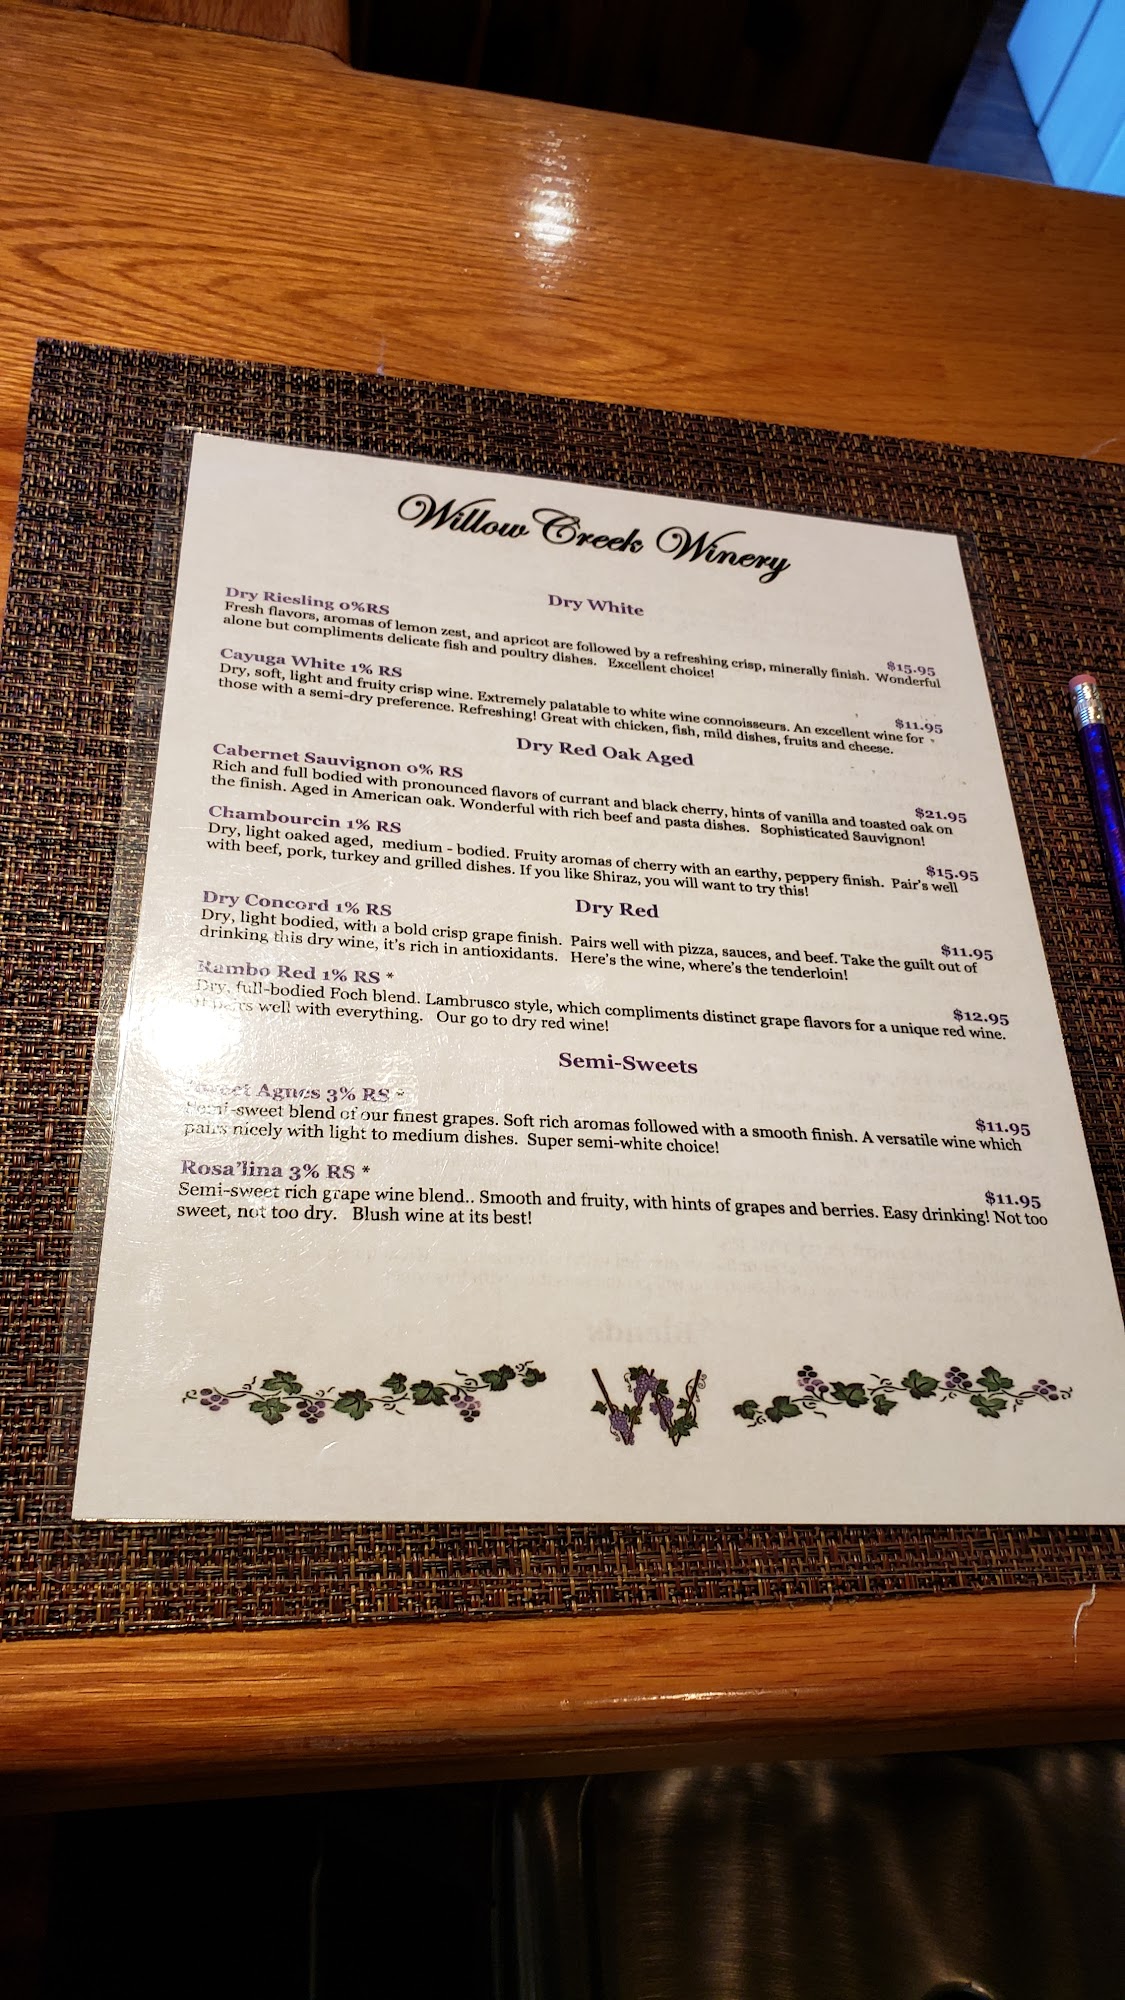 Willow Creek Winery
Dry White
Dry Riesling 0%RS $15.95
Fresh flavors, aromas of lemon zest, and apricot are followed by a refreshing crisp, minerally finish. Wonderful
alone but compliments delicate fish and poultry dishes. Excellent choice!
Cayuga White 1% RS $11.95
Dry, soft, light and fruity crisp wine. Extremely palatable to white wine connoisseurs. An excellent wine for
those with a semi-dry preference. Refreshing! Great with chicken, fish, mild dishes, fruits and cheese.
Dry Red Oak Aged
Cabernet Sauvignon 0% RS $21.95
Rich and full bodied with pronounced flavors of currant and black cherry, hints of vanilla and toasted oak on
the finish. Aged in American oak. Wonderful with rich beef and pasta dishes. Sophisticated Sauvignon!
Chambourcin 1% RS $15.95
Dry, light oaked aged, medium - bodied. Fruity aromas of cherry with an earthy, peppery finish. Pair's well
with beef, pork, turkey and grilled dishes. If you like Shiraz, you will want to try this!
Dry Red
Dry Concord 1% RS $11.95
Dry, light bodied, with a bold crisp grape finish. Pairs well with pizza, sauces, and beef. Take the guilt out of
drinking this dry wine, it's rich in antioxidants. Here's the wine, where's the tenderloin!
Rambo Red 1% RS * $12.95
Dry, full-bodied Foch blend. Lambrusco style, which compliments distinct grape flavors for a unique red wine.
It pairs well with everything. Our go to dry red wine!
Semi-Sweets
Sweet Agnes 3% RS * $11.95
Semi-sweet blend of our finest grapes. Soft rich aromas followed with a smooth finish. A versatile wine which
pairs nicely with light to medium dishes. Super semi-white choice!
Rosa'lina 3% RS * $11.95
Semi-sweet rich grape wine blend.. Smooth and fruity, with hints of grapes and berries. Easy drinking! Not too
sweet, not too dry. Blush wine at its best!
W